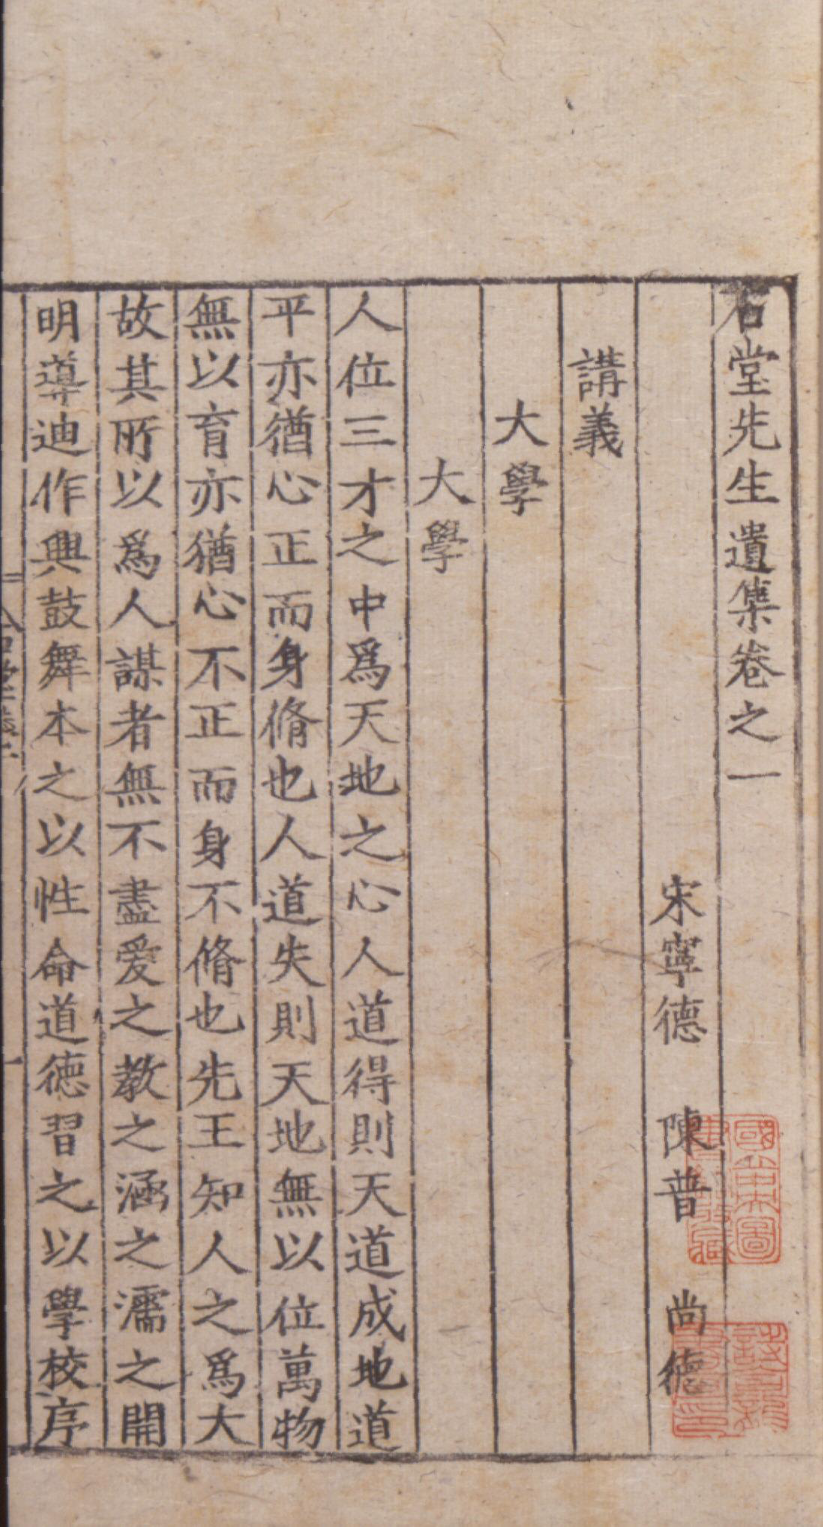 石堂先生遺集卷之一
宋寧德　陳普　尚德
講義
大學
大學
人位三才之中爲天地之心人道得則天道成地道
平亦猶心正而身脩也人道失則天地無以位萬物
無以育亦猶心不正而身不脩也先王知人之爲大
故其所以爲人謀者無不盡愛之教之涵之濡之開
明導迪作興鼓舞本之以性命道德習之以學校序